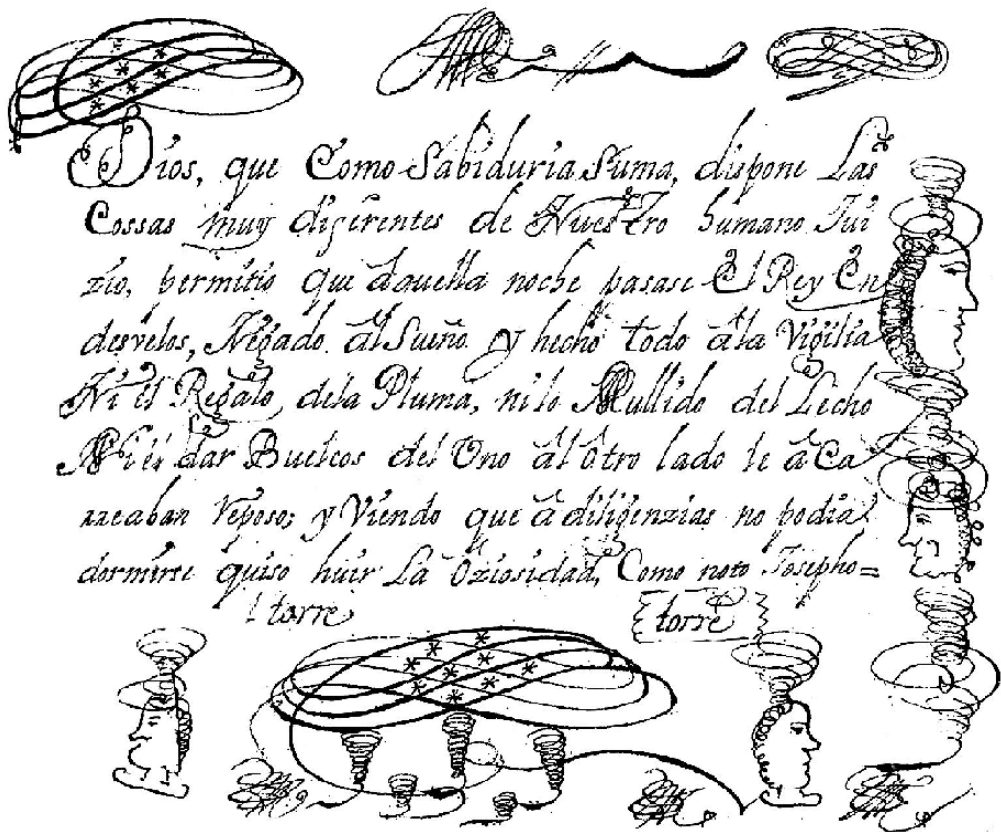 Dios, que Como Sabiduria Suma, dispone Las
Cossas muy diferentes de Nuestro humano Jui
zio, permitio que áquella noche pasase El Rey En
desvelos, Negado ál Sueño y hecho todo á la Vigilia
Ni él Regalo dela Pluma, ni lo Mullido del Lecho
Ni él dar Buelcos del Uno ál ótro lado le áCa
rreaban reposo; y Viendo que á diligenzias no podia
dormirse quiso huir La óziosidad, Como noto Josepho=
torre torre